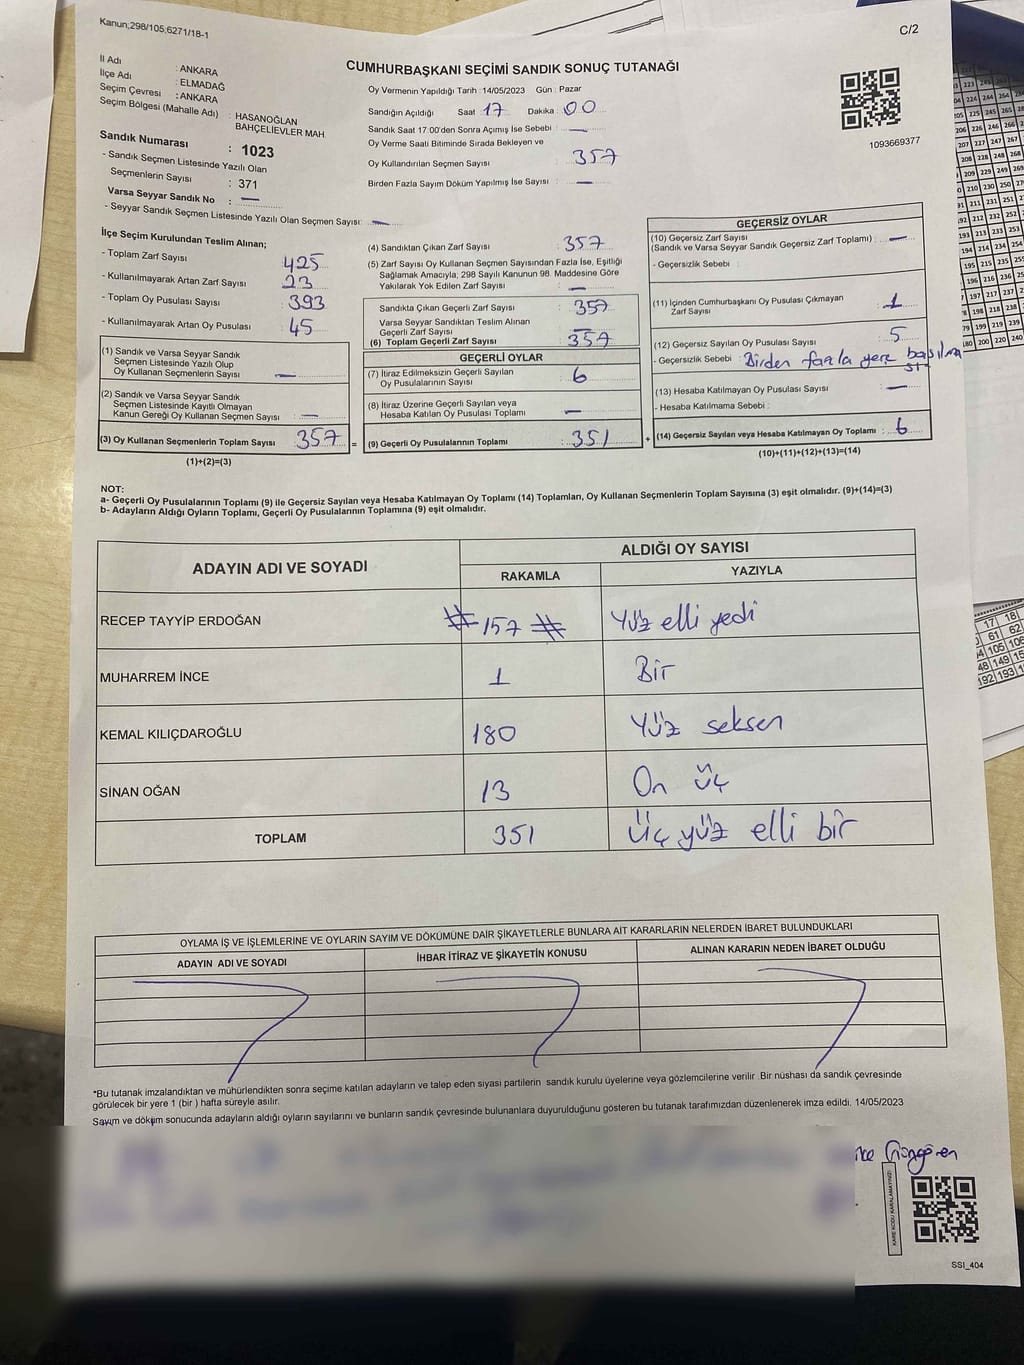 Kanun;298/105;6271/18-1
C/2
İl Adı : ANKARA
İlçe Adı : ELMADAĞ
Seçim Çevresi : ANKARA
Seçim Bölgesi (Mahalle Adı) : HASANOĞLAN BAHÇELİEVLER MAH.
Sandık Numarası : 1023
- Sandık Seçmen Listesinde Yazılı Olan
Seçmenlerin Sayısı : 371
Varsa Seyyar Sandık No : —
- Seyyar Sandık Seçmen Listesinde Yazılı Olan Seçmen Sayısı: —
CUMHURBAŞKANI SEÇİMİ SANDIK SONUÇ TUTANAĞI
Oy Vermenin Yapıldığı Tarih : 14/05/2023 Gün : Pazar
Sandığın Açıldığı Saat : 17 Dakika : 00
Sandık Saat 17:00'den Sonra Açımış İse Sebebi : —
Oy Verme Saati Bitiminde Sırada Bekleyen ve
Oy Kullandırılan Seçmen Sayısı : 357
Birden Fazla Sayım Döküm Yapılmış İse Sayısı : —
1093669377
İlçe Seçim Kurulundan Teslim Alınan;
- Toplam Zarf Sayısı : 425
- Kullanılmayarak Artan Zarf Sayısı : 23
- Toplam Oy Pusulası Sayısı : 393
- Kullanılmayarak Artan Oy Pusulası : 45
(1) Sandık ve Varsa Seyyar Sandık
Seçmen Listesinde Yazılı Olup
Oy Kullanan Seçmenlerin Sayısı : —
(2) Sandık ve Varsa Seyyar Sandık
Seçmen Listesinde Kayıtlı Olmayan
Kanun Gereği Oy Kullanan Seçmen Sayısı : —
(3) Oy Kullanan Seçmenlerin Toplam Sayısı : 357 =
(1)+(2)=(3)
(4) Sandıktan Çıkan Zarf Sayısı : 357
(5) Zarf Sayısı Oy Kullanan Seçmen Sayısından Fazla İse, Eşitliği
Sağlamak Amacıyla; 298 Sayılı Kanunun 98. Maddesine Göre
Yakılarak Yok Edilen Zarf Sayısı : —
Sandıkta Çıkan Geçerli Zarf Sayısı : 357
Varsa Seyyar Sandıktan Teslim Alınan
Geçerli Zarf Sayısı
(6) Toplam Geçerli Zarf Sayısı : 357
GEÇERLİ OYLAR
(7) İtiraz Edilmeksizin Geçerli Sayılan
Oy Pusulasının Sayısı : 6
(8) İtiraz Üzerine Geçerli Sayılan veya
Hesaba Katılan Oy Pusulası Toplamı : —
(9) Geçerli Oy Pusulalarının Toplamı : 351 +
GEÇERSİZ OYLAR
(10) Geçersiz Zarf Sayısı
(Sandık ve Varsa Seyyar Sandık Geçersiz Zarf Toplamı) : —
- Geçersizlik Sebebi :
(11) İçinden Cumhurbaşkanı Oy Pusulası Çıkmayan
Zarf Sayısı : 1
(12) Geçersiz Sayılan Oy Pusulası Sayısı : 5
- Geçersizlik Sebebi : Birden fazla yere basılma
(13) Hesaba Katılmayan Oy Pusulası Sayısı : —
- Hesaba Katılmama Sebebi :
(14) Geçersiz Sayılan veya Hesaba Katılmayan Oy Toplamı : 6
(10)+(11)+(12)+(13)=(14)
NOT:
a- Geçerli Oy Pusulalarının Toplamı (9) ile Geçersiz Sayılan veya Hesaba Katılmayan Oy Toplamı (14) Toplamları, Oy Kullanan Seçmenlerin Toplam Sayısına (3) eşit olmalıdır. (9)+(14)=(3)
b- Adayların Aldığı Oyların Toplamı, Geçerli Oy Pusulalarının Toplamına (9) eşit olmalıdır.
ADAYIN ADI VE SOYADI ALDIĞI OY SAYISI
RAKAMLA YAZIYLA
RECEP TAYYİP ERDOĞAN #157# Yüz elli yedi
MUHARREM İNCE 1 Bir
KEMAL KILIÇDAROĞLU 180 Yüz seksen
SİNAN OĞAN 13 On üç
TOPLAM 351 Üç yüz elli bir
OYLAMA İŞ VE İŞLEMLERİNE VE OYLARIN SAYIM VE DÖKÜMÜNE DAİR ŞİKAYETLERLE BUNLARA AİT KARARLARIN NELERDEN İBARET BULUNDUKLARI
ADAYIN ADI VE SOYADI İHBAR İTİRAZ VE ŞİKAYETİN KONUSU ALINAN KARARIN NEDEN İBARET OLDUĞU
*Bu tutanak imzalandıktan ve mühürlendikten sonra seçime katılan adayların ve talep eden siyasi partilerin sandık kurulu üyelerine veya gözlemcilerine verilir .Bir nüshası da sandık çevresinde
görülecek bir yere 1 (bir ) hafta süreyle asılır.
Sayım ve döküm sonucunda adayların aldığı oyların sayılarını ve bunların sandık çevresinde bulunanlara duyurulduğunu gösteren bu tutanak tarafımızdan düzenlenerek imza edildi. 14/05/2023
KARE KODU KARALAMAYINIZ!
SSI_404